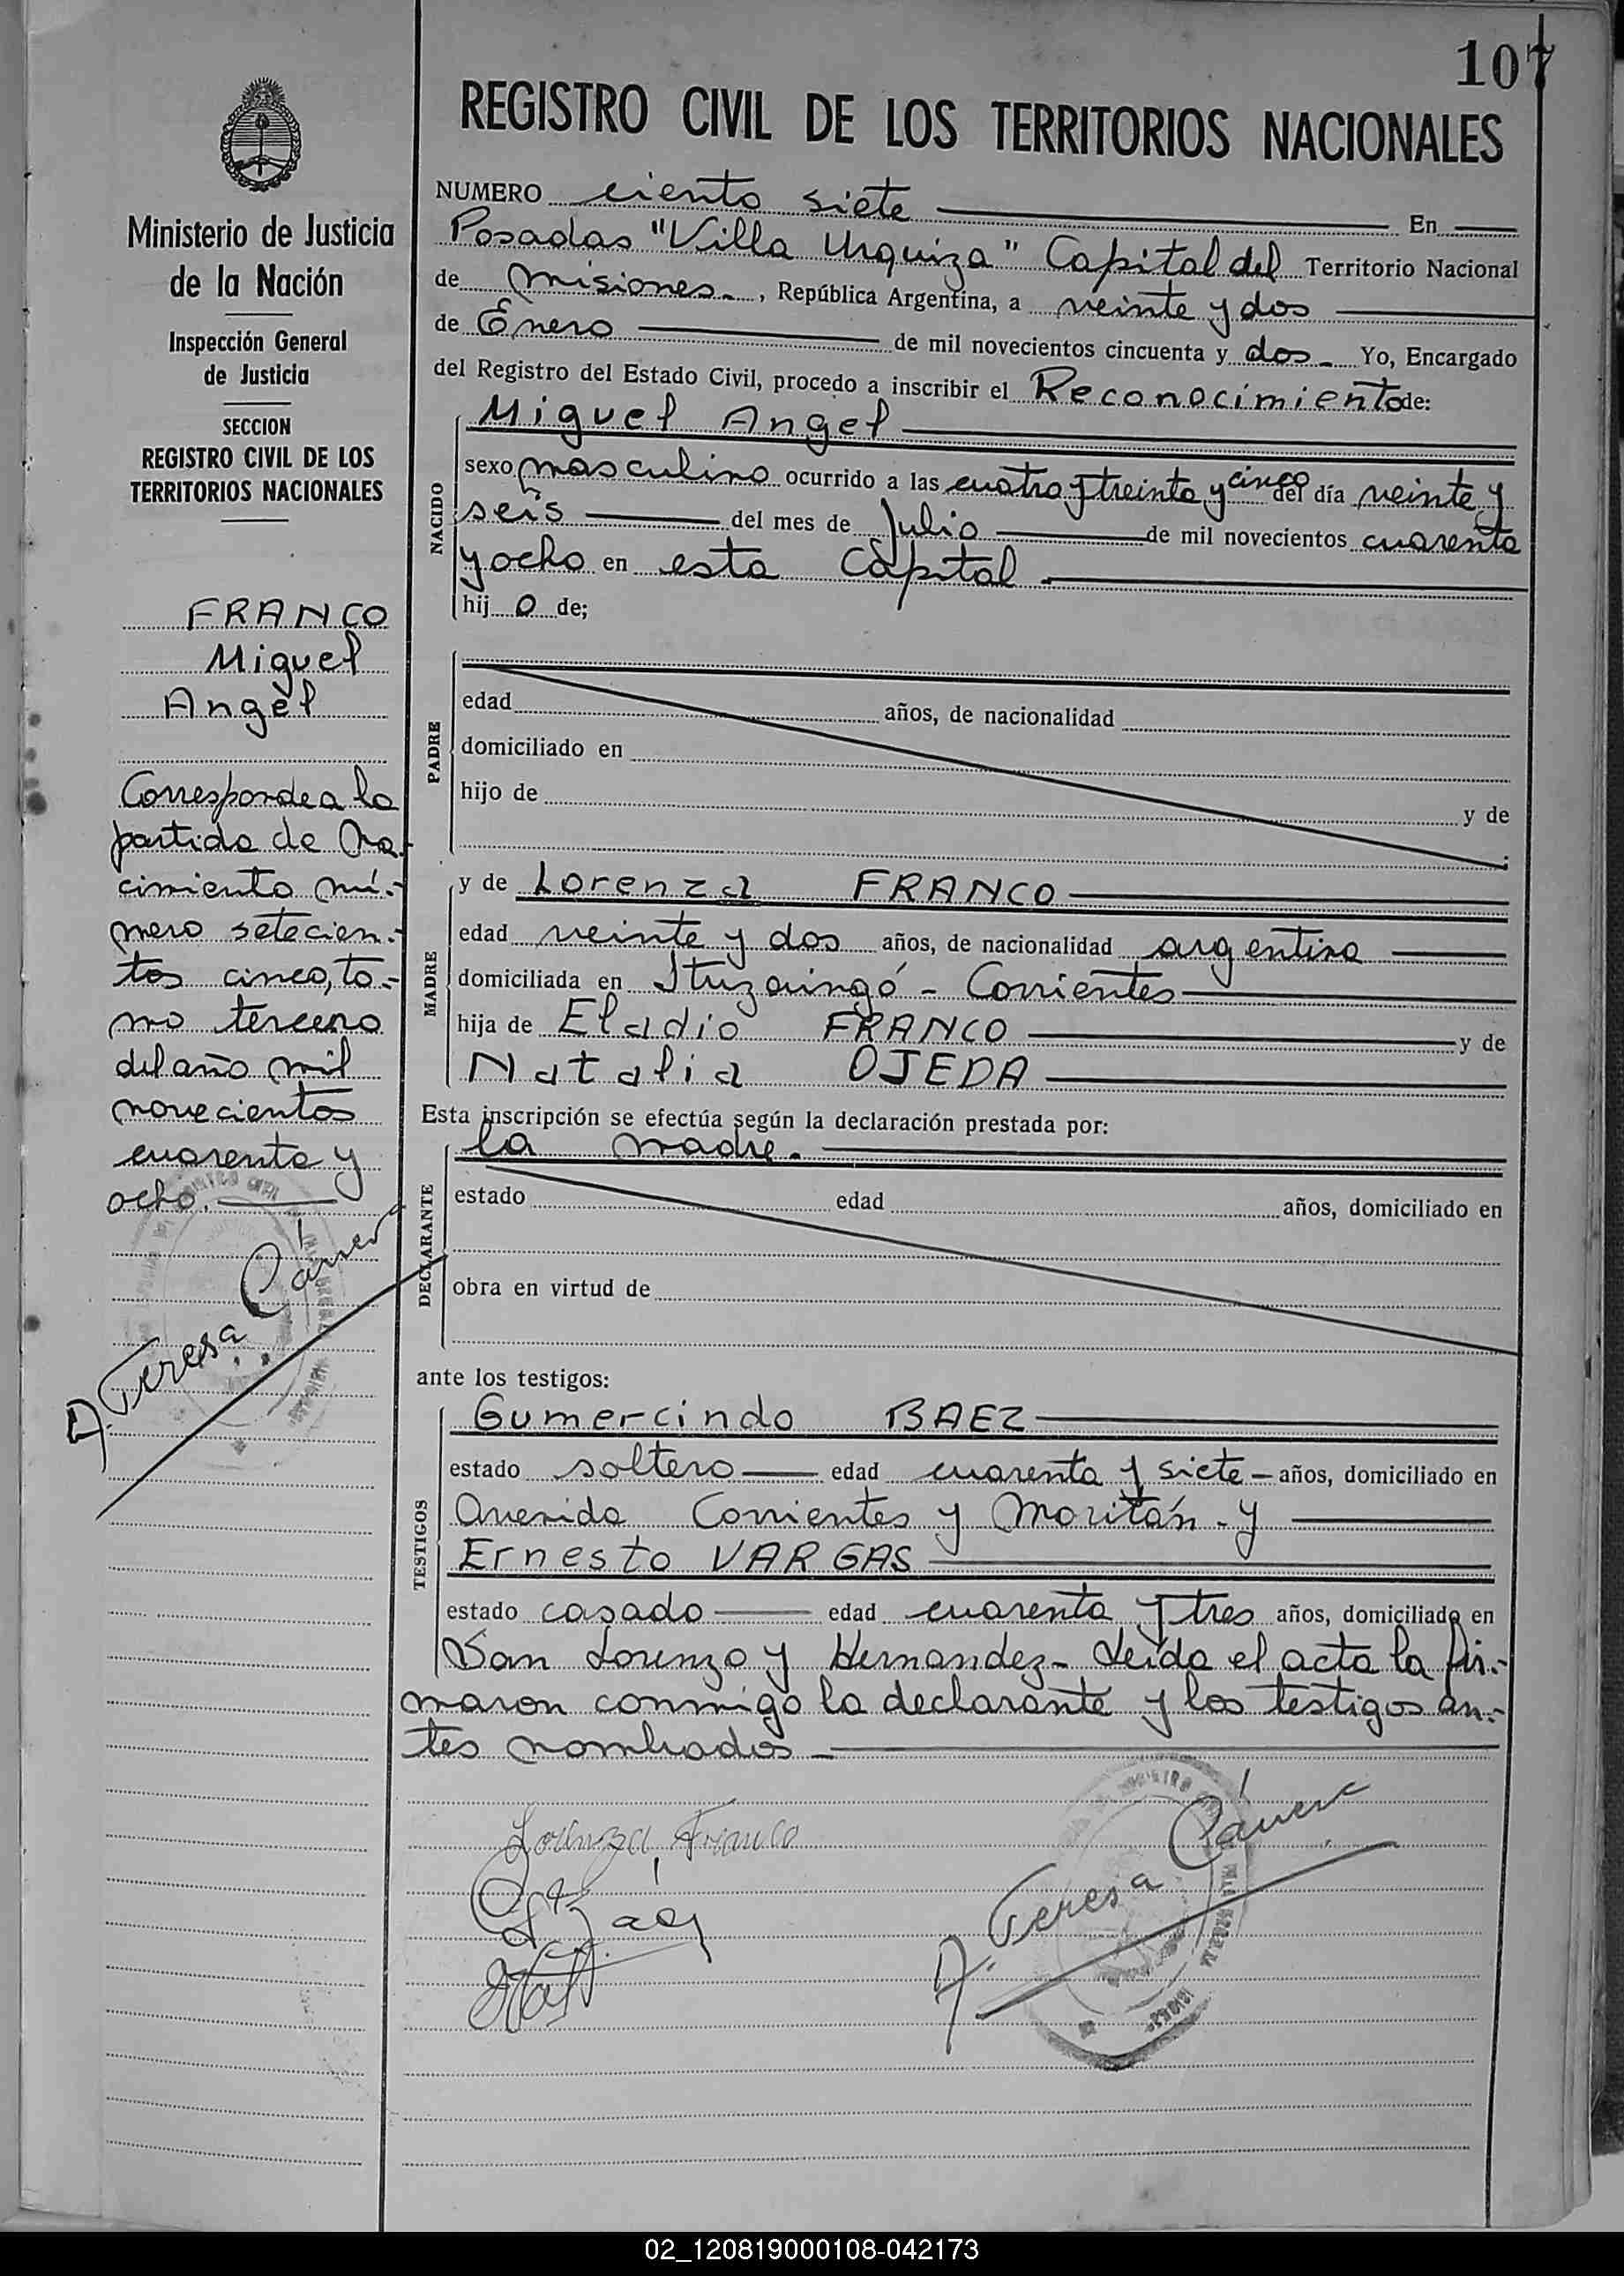 107
REGISTRO CIVIL DE LOS TERRITORIOS NACIONALES
Ministerio de Justicia
de la Nación
Inspección General
de Justicia
SECCION
REGISTRO CIVIL DE LOS
TERRITORIOS NACIONALES
FRANCO
Miguel
Angel
Corresponde a la
partida de Na-
cimiento nú-
mero setecien-
tos cinco, to-
mo tercero
del año mil
novecientos
cuarenta y
ocho.
A. Teresa Cámera
NUMERO ciento siete En
Posadas "Villa Urquiza" Capital del Territorio Nacional
de Misiones , República Argentina, a veinte y dos
de Enero de mil novecientos cincuenta y dos Yo, Encargado
del Registro del Estado Civil, procedo a inscribir el Reconocimiento de:
Miguel Angel
NACIDO
sexo masculino ocurrido a las cuatro y treinta y cinco del día veinte y
seis del mes de Julio de mil novecientos cuarenta
y ocho en esta Capital
hij o de;
PADRE
edad años, de nacionalidad
domiciliado en
hijo de y de
MADRE
y de Lorenza FRANCO
edad veinte y dos años, de nacionalidad argentina
domiciliada en Ituzaingó - Corrientes
hija de Eladio FRANCO y de
Natalia OJEDA
Esta inscripción se efectúa según la declaración prestada por:
la madre.
DECLARANTE
estado edad años, domiciliado en
obra en virtud de
ante los testigos:
TESTIGOS
Gumercindo BAEZ
estado soltero edad cuarenta y siete años, domiciliado en
Avenida Corrientes y Moritán - y
Ernesto VARGAS
estado casado edad cuarenta y tres años, domiciliado en
San Lorenzo y Hernandez - Leída el acta la fir-
maron conmigo la declarante y los testigos an-
tes nombrados
Lorenza Franco
A. Teresa Cámera
02_120819000108-042173